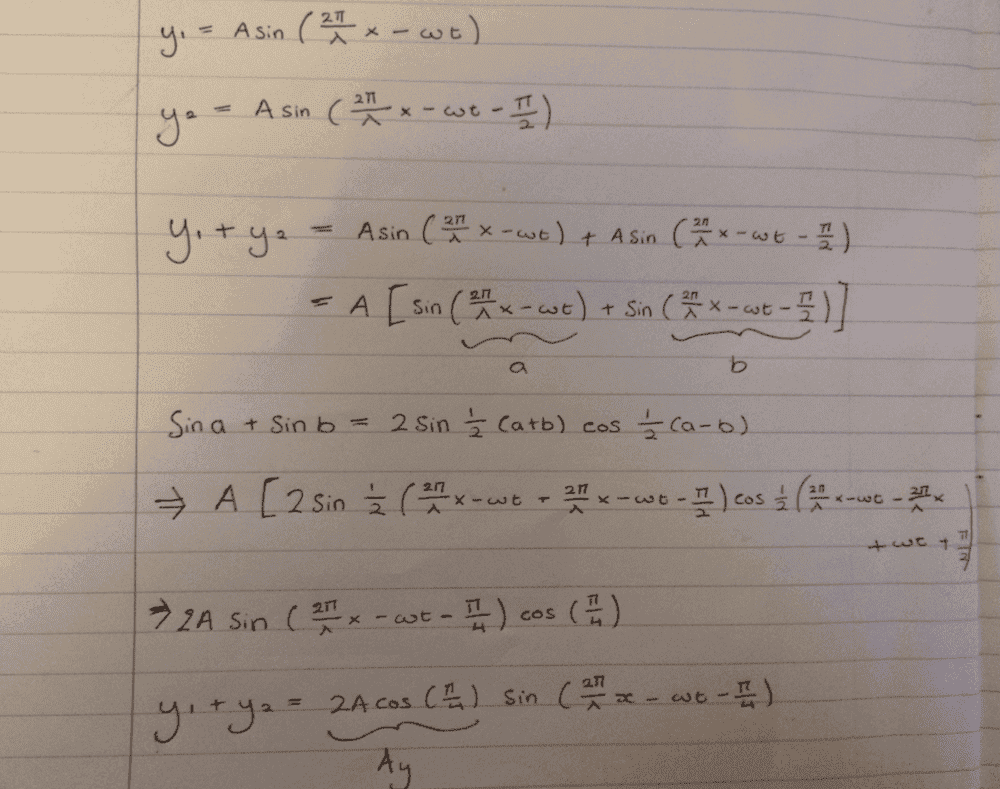 y₁ = A sin (2π/λ x - ωt)
y₂ = A sin (2π/λ x - ωt - π/2)
y₁ + y₂ = A sin (2π/λ x - ωt) + A sin (2π/λ x - ωt - π/2)
= A [ sin (2π/λ x - ωt) + sin (2π/λ x - ωt - π/2) ]
a b
Sin a + Sin b = 2 Sin 1/2 (a+b) cos 1/2 (a-b)
⇒ A [ 2 Sin 1/2 (2π/λ x - ωt + 2π/λ x - ωt - π/2) cos 1/2 (2π/λ x - ωt - 2π/λ x
+ ωt + π/2)
⇒ 2A Sin (2π/λ x - ωt - π/4) cos (π/4)
y₁ + y₂ = 2A cos (π/4) Sin (2π/λ x - ωt - π/4)
Ay